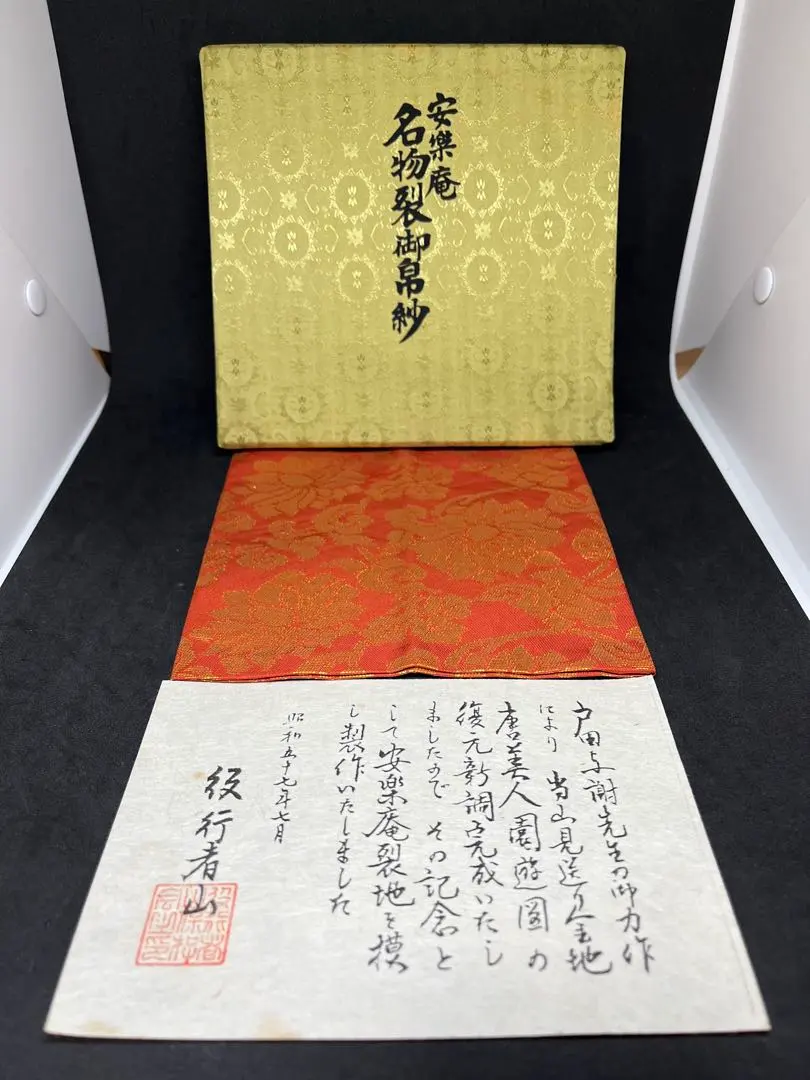 安樂庵
名物裂御帛紗
戸田与謝先生の御力作
により 当山見送り金地
唐美人園遊図の
復元新調が完成いたし
ましたので その記念と
して安楽庵裂地を模
し製作いたしました
昭和五十七年七月
役行者山